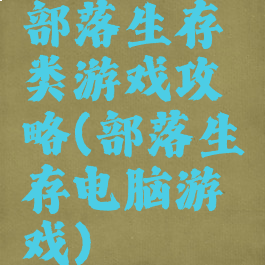 部落生存
类游戏攻
略(部落生
存电脑游
戏)